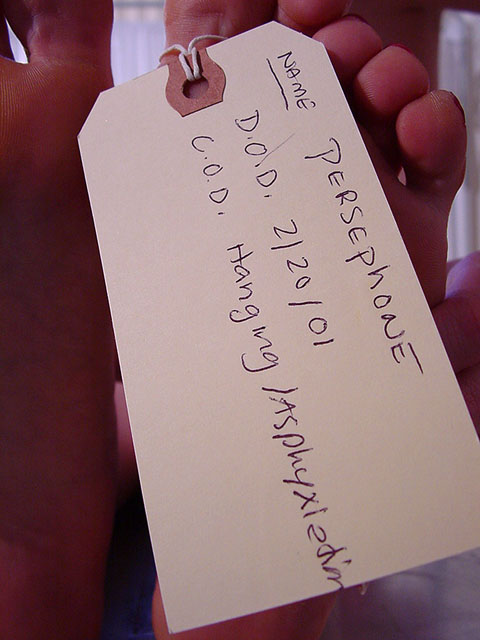 NAME PERSEPHONE
D.O.D. 2/20/01
C.O.D. Hanging/Asphyxiation